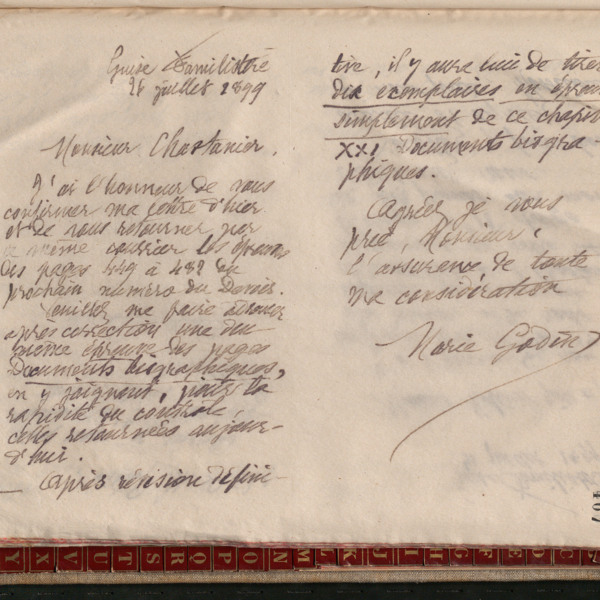 Guise Familistère
26 juillet 1899
Monsieur Chastanier.
J'ai l'honneur de vous
confirmer ma lettre d'hier
et de vous retourner par
ce même courrier les épreuves
des pages 449 à 481 du
prochain numéro du Devoir.
Veuillez me faire envoyer
après correction une deu
xième épreuve des pages
Documents biographiques,
en y joignant, pour la
rapidité du contrôle,
celles retournées aujour-
d'hui.
Après révision défini-
tive, il y aura lieu de tirer
dix exemplaires en épreuves
simplement de ce chapitre
XXI Documents biogra-
phiques.
Agréez, je vous
prie, Monsieur,
l'assurance de toute
ma considération
Marie Godin
407
X V U T S R Q P O N M L K J I H G F E D C